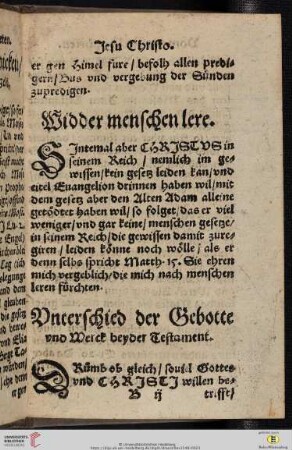 Jesu Christo.
er gen Himel fure / befolh allen predi-
gern / Bus vnd vergebung der Sünden
zupredigen.
Widder menschen lere.
SIntemal aber CHRISTVS in
seinem Reich / nemlich im ge-
wissen / kein gesetz leiden kan / vnd
eitel Euangelion drinnen haben wil / mit
dem gesetz aber den Alten Adam alleine
getödtet haben wil / so folget / das er viel
weniger / vnd gar keine / menschen gesetze /
in seinem Reich / die gewissen damit zure-
giren / leiden könne noch wölle / als er
denn selbs spricht Matth. 15. Sie ehren
mich vergeblich / die mich nach menschen
leren fürchten.
Vnterschied der Gebotte
vnd Werck beyder Testament.
DRümb ob gleich / souil Gottes
vnd CHRISTI willen be-
B ij
trifft /